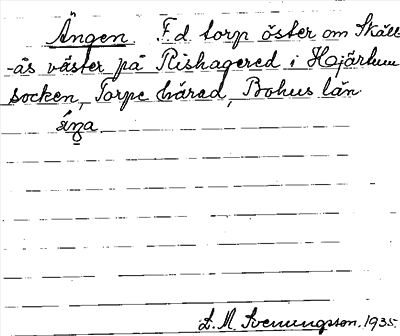 Ängen F.d torp öster om Skäll
-ås väster på Rishagered i Hajärhum
socken, Torpe härad, Bohus län
L. M. Svenungsson. 1935.